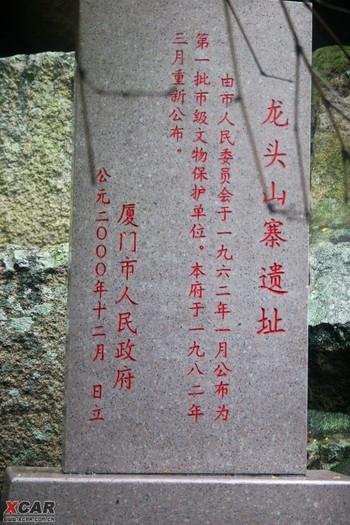 龙头山寨遗址
由市人民委员会于一九六二年一月公布为
第一批市级文物保护单位。本府于一九八二年
三月重新公布。
厦门市人民政府
公元二〇〇〇年十二月 日立
XCAR
WWW.XCAR.COM.CN